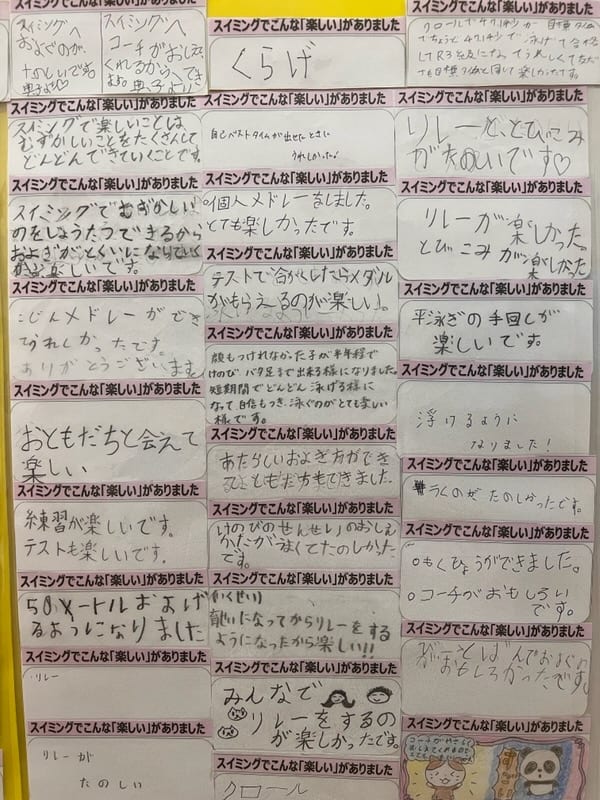 スイミングへ
およぐのが、
たのしいです。
スイミングへ
コーチがおしえ
くれるから、
スイミングでこんな「楽しい」がありました
スイミングで楽しいことは、
むずかしいことをたくさんして
どんどんできていくことです。
スイミングでこんな「楽しい」がありました
スイミングでむずかしい
のをしょうたつできるから
およぎがとくいになりていく
楽しいです。
スイミングでこんな「楽しい」がありました
こじんメドレーができ
うれしかったです。
ありがとうございます
スイミングでこんな「楽しい」がありました
おともだちと会えて
楽しい
スイミングでこんな「楽しい」がありました
練習が楽しいです。
テストも楽しいです。
スイミングでこんな「楽しい」がありました
50メートルおよげ
るようになりました
スイミングでこんな「楽しい」がありました
リレー
スイミングでこんな「楽しい」がありました
リレーが
たのしい
スイミングでこんな「楽しい」がありました
くらげ
スイミングでこんな「楽しい」がありました
自己ベストタイムが出せたときに
うれしかった!
スイミングでこんな「楽しい」がありました
個人メドレーをしました。
とても楽しかったです。
スイミングでこんな「楽しい」がありました
テストで合かくしたらメダル
がもらえるのが楽しい。
スイミングでこんな「楽しい」がありました
顔もつけれなかった子が半年程で
けのび、バタ足まで出来る様になりました。
短期間でどんどん泳げる様に
なって自信もつき、泳ぐのがとても楽しい
様です。
スイミングでこんな「楽しい」がありました
あたらしいおよぎ方ができ
てともだちもできました。
スイミングでこんな「楽しい」がありました
けのびのせんせいのおしえ
かたがうまくてたのしかった
です。
スイミングでこんな「楽しい」がありました
龍いになってからリレーをする
ようになったから楽しい!!
スイミングでこんな「楽しい」がありました
みんなで
リレーをするの
が楽しかったです。
スイミングでこんな「楽しい」がありました
クロール
スイミングでこんな「楽しい」がありました
クロールで47.1秒が目標タイム
でちょうど47.1秒で泳げて合格
スイミングでこんな「楽しい」がありました
リレーと、とびこみ
がたのしいです♡
スイミングでこんな「楽しい」がありました
リレーが楽しかった。
とびこみが楽しかった
スイミングでこんな「楽しい」がありました
平泳ぎの手回しが
楽しいです。
スイミングでこんな「楽しい」がありました
浮けるように
なりました!
スイミングでこんな「楽しい」がありました
たのしかったです。
スイミングでこんな「楽しい」がありました
○もくひょうができました。
○コーチがおもしろい
です。
スイミングでこんな「楽しい」がありました
おもしろかったです。
スイミングでこんな「楽しい」がありました
コーチがやさしく